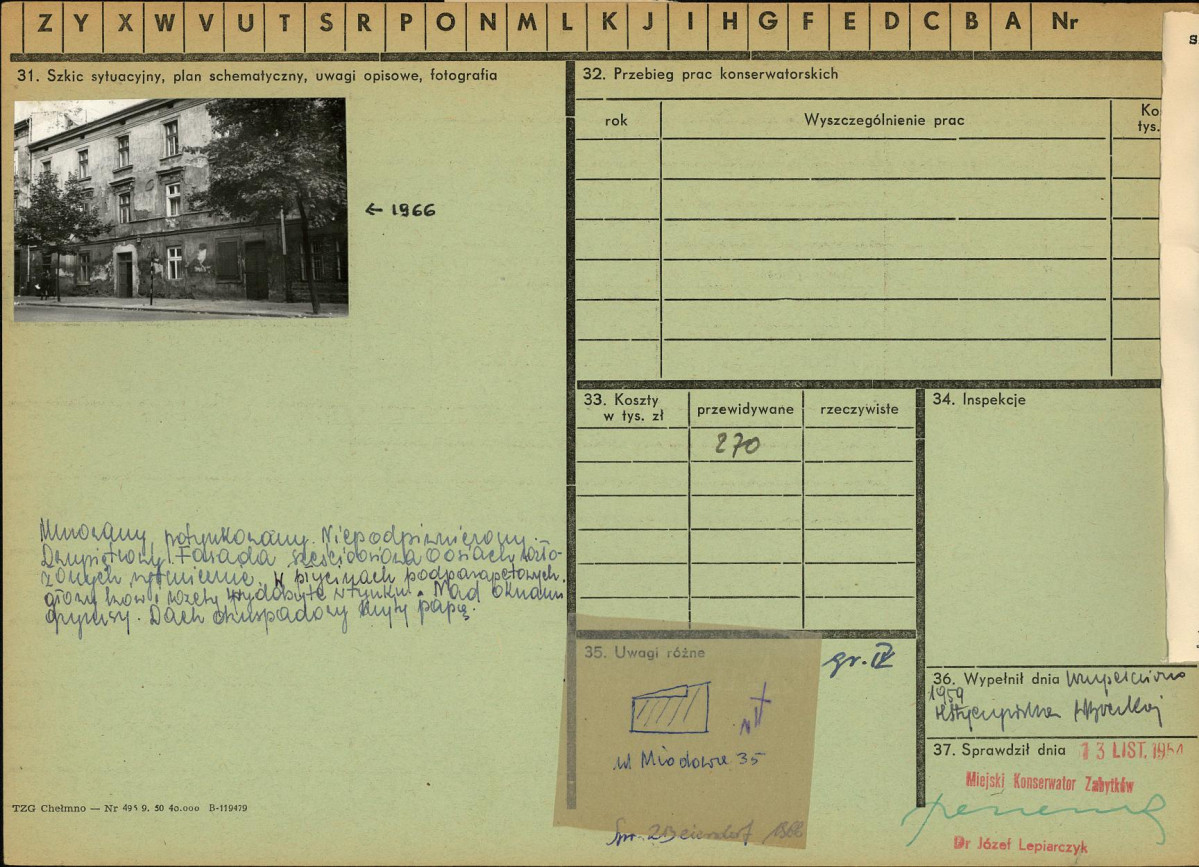 Z Y X W V U T S R P O N M L K J I H G F E D C B A Nr
31. Szkic sytuacyjny, plan schematyczny, uwagi opisowe, fotografia
← 1966
Murowany, potynkowany. Niepodpiwniczony.
Dwupiętrowy. Fasada sześcioosiowa o osiach rozło-
żonych W płycinach podparapetowych
głowy lwów i rozety wydobyte w tynku. Nad oknami
gzymsy. Dach dwuspadowy kryty papą.
TZG Chełmno — Nr 495 9. 50 40.000 B-119479
32. Przebieg prac konserwatorskich
rok
Wyszczególnienie prac
Ko
tys.
33. Koszty
w tys. zł
przewidywane
rzeczywiste
270
34. Inspekcje
35. Uwagi różne
gr. IV
N
ul Miodowa 35
Spr. 1968
36. Wypełnił dnia
1959
37. Sprawdził dnia 13 LIST. 195
Miejski Konserwator Zabytków
Dr Józef Lepiarczyk
s